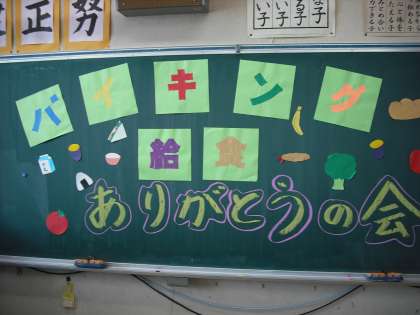 正努
バイキング
給食
ありがとうの会